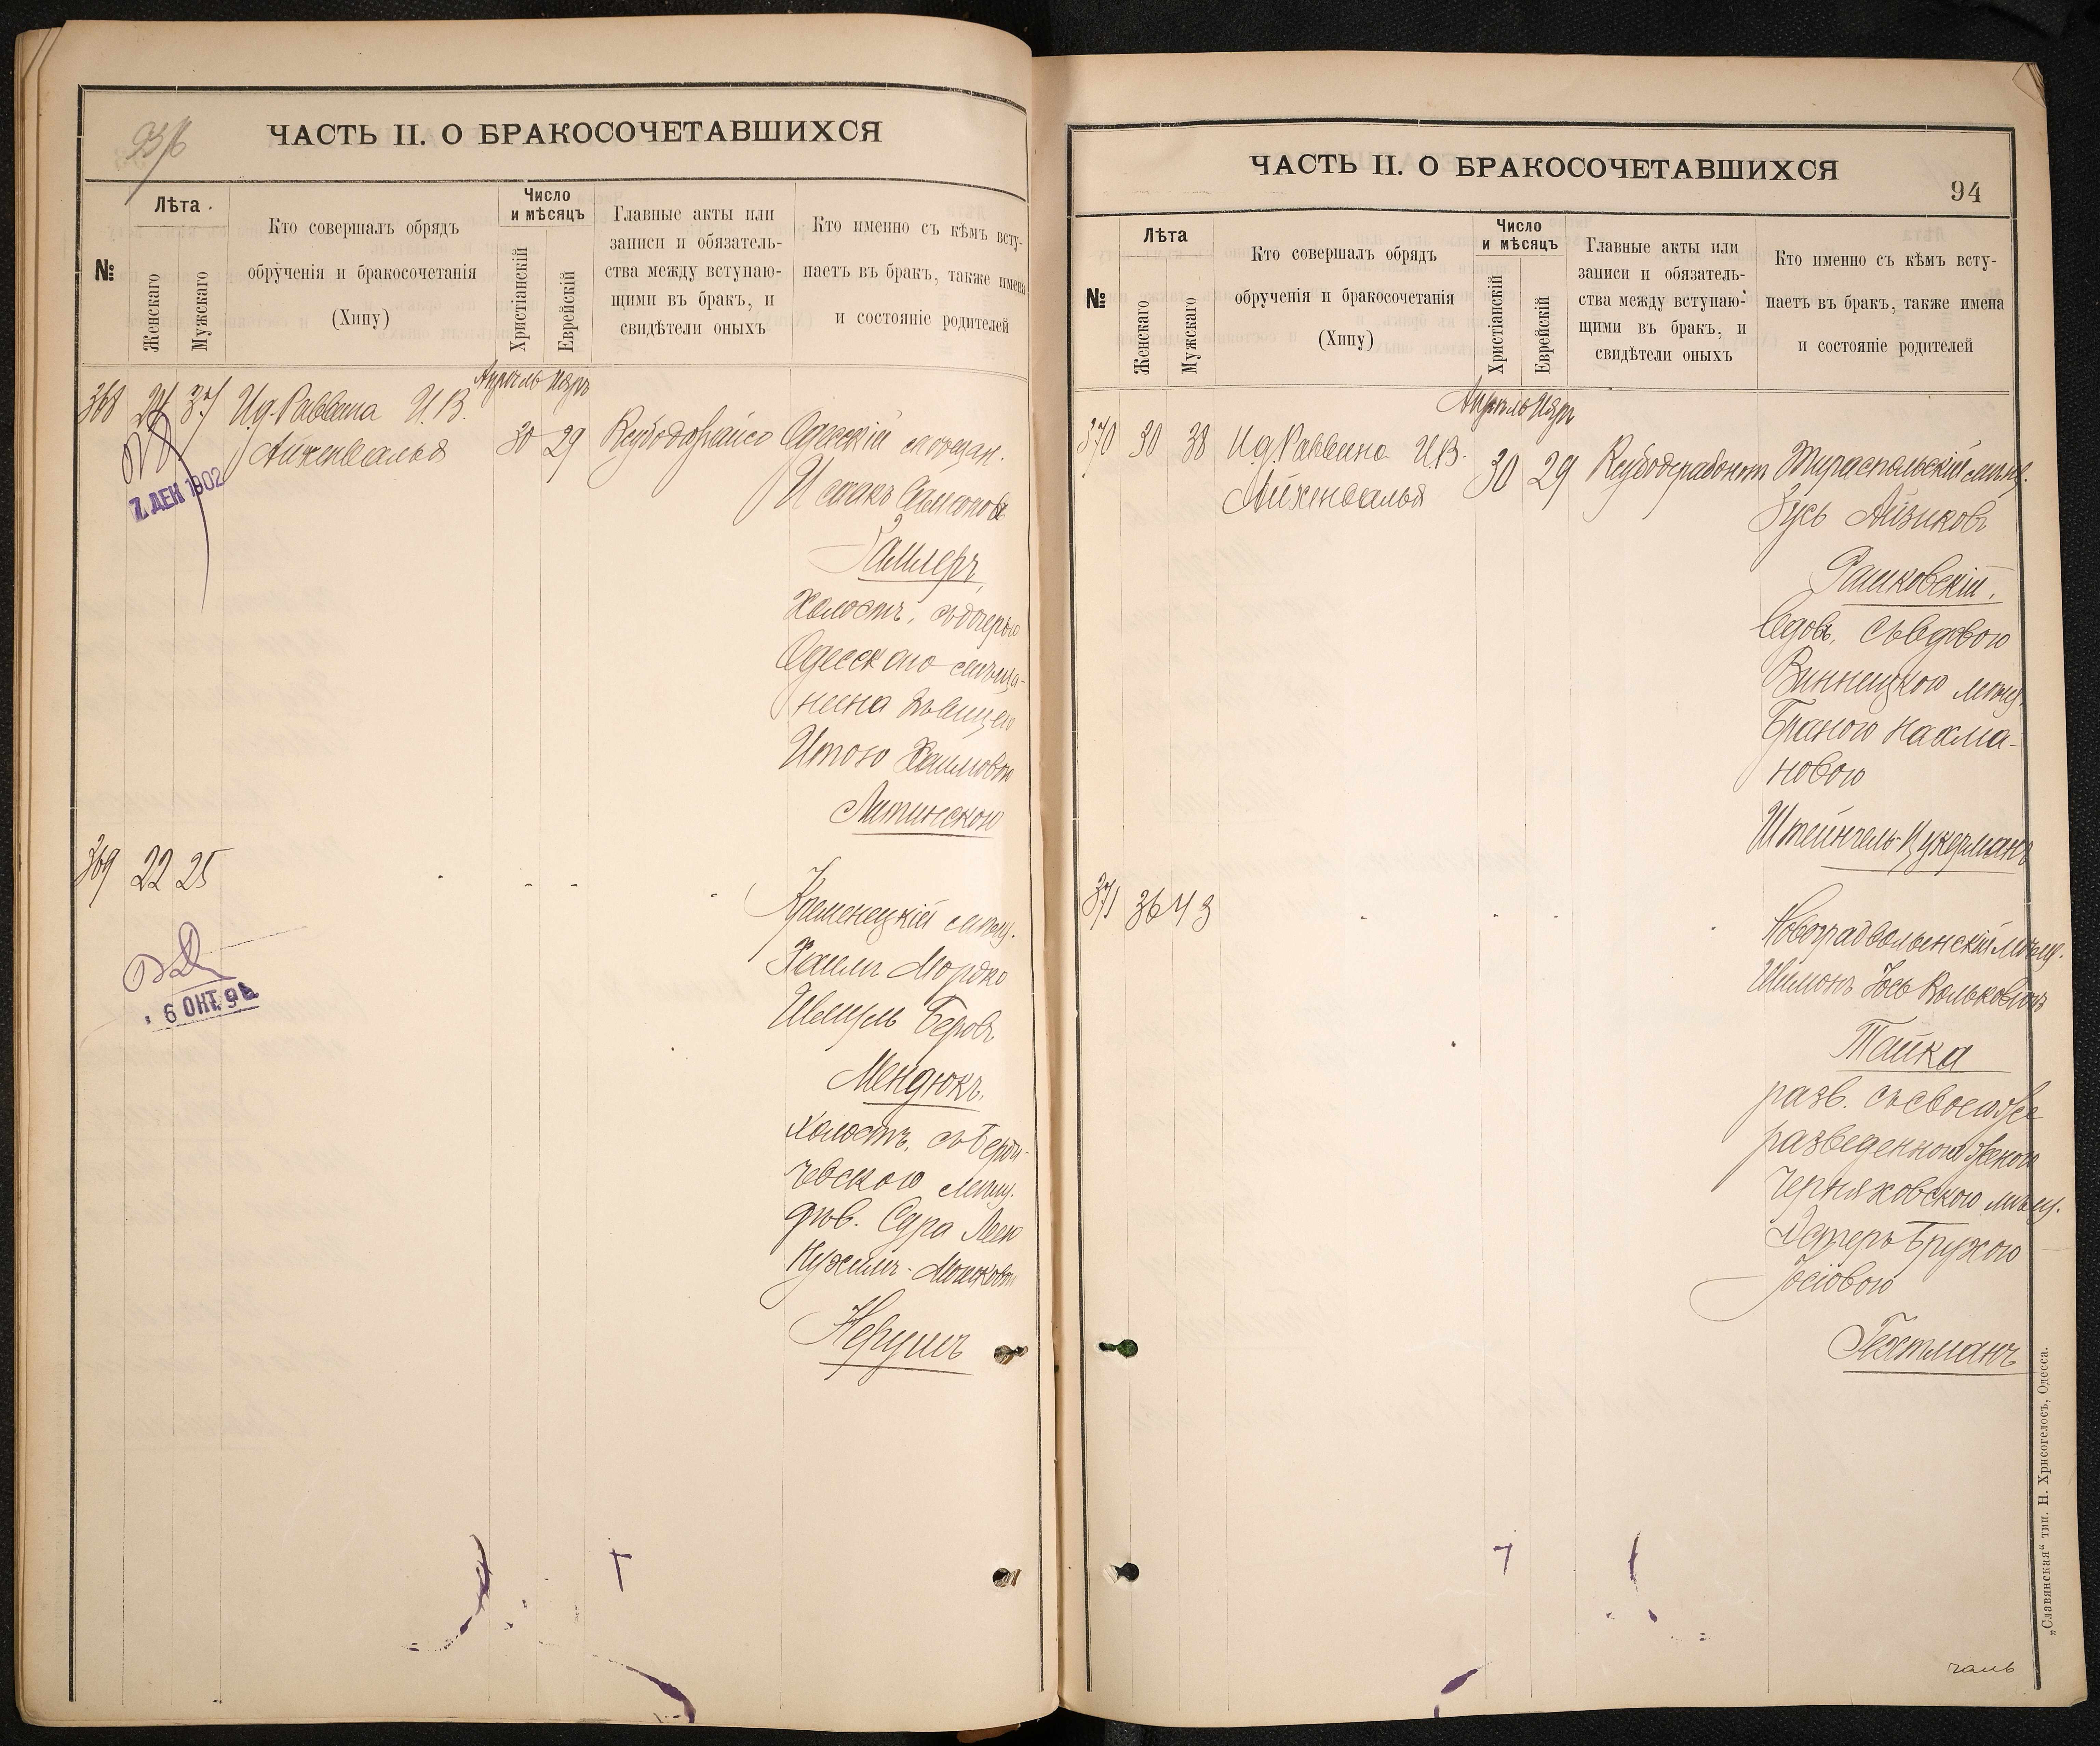 ЧАСТЬ II. О БРАКОСОЧЕТАВШИХСЯ
№
Лѣта
Женскаго
Мужскаго
Кто совершалъ обрядъ
обрученія и бракосочетанія
(Хипу)
Число
и мѣсяцъ
Христіанскій
Еврейскій
Главные акты или
записи и обязатель-
ства между вступаю-
щими въ бракъ, и
свидѣтели оныхъ
Кто именно съ кѣмъ всту-
паетъ въ бракъ, также имена
и состояніе родителей
Апрѣль Іяръ
368 37 И.д. Раввина И.В.
Айхенвальдъ
30 29
Одесскій мѣщан.
Исаакъ Самсоновъ
Гамлеръ,
Холостъ, съ дочерью
Одесскаго мѣща-
нина дѣвицею
Итою Хаимовою
Литинскою
7 ДЕК 1902
369 22 25
Кременецкій мѣщ.
Хаимъ Мордко
Шмуль Беровъ
Мендюкъ,
холостъ, съ Берди-
чевскою мѣщ.
дѣв. Сура Леею
Нухимъ-Мошковою
Нерушъ
6 ОКТ. 9
ЧАСТЬ II. О БРАКОСОЧЕТАВШИХСЯ
94
№
Лѣта
Женскаго
Мужскаго
Кто совершалъ обрядъ
обрученія и бракосочетанія
(Хипу)
Число
и мѣсяцъ
Христіанскій
Еврейскій
Главные акты или
записи и обязатель-
ства между вступаю-
щими въ бракъ, и
свидѣтели оныхъ
Кто именно съ кѣмъ всту-
паетъ въ бракъ, также имена
и состояніе родителей
Апрѣль Іяръ
370 30 38 И.д. Раввина И.В.
Айхенвальдъ
30 29
Тираспольскій мѣщ.
Зусь Айзиковъ
Рашковскій,
вдов., съ вдовою
Винницкою мѣщ.
Браною Нахма-
новою
Штейнгель-Цукерманъ
371 36 43
Новоградволынскій мѣщ.
Шимонъ Іось Вольковичъ
Тайка
разв. съ своею же
разведенною женою
Черняховскою мѣщ.
Эстеръ Брухою
Іосіовою
Гехтманъ
„Славянская“ тип. Н. Хрисогелосъ, Одесса.